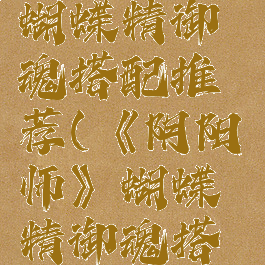 蝴蝶精御
魂搭配推
荐(《阴阳
师》蝴蝶
精御魂搭